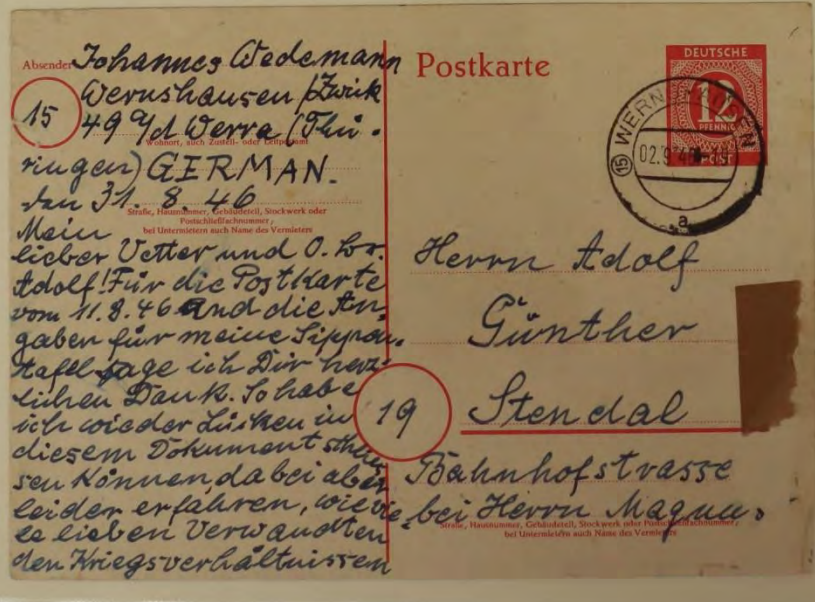 Absender Johannes Wedemann
Wernshausen / Zwick
15
49 a/d Werra (Thü-
Wohnort, auch Zustell- oder Leitpostamt
ringen) GERMAN.
den 31. 8. 46
Straße, Hausnummer, Gebäudeteil, Stockwerk oder
Postschließfachnummer;
bei Untermietern auch Name des Vermieters
Mein
lieber Vetter und O. Br.
Adolf! Für die Postkarte
vom 11.8.46 und die An-
gaben für meine Sippen-
tafel sage ich Dir herz-
lichen Dank. So habe
ich wieder Lücken in
diesem Dokument schlies-
sen können, dabei aber
leider erfahren, wievie-
le lieben Verwandten
den Kriegsverhältnissen
Postkarte
DEUTSCHE
12
PFENNIG
POST
(15) WERNSHAUSEN
02.9.46
a
Herrn Adolf
Günther
19
Stendal
Bahnhofstrasse
bei Herrn Magnus
Straße, Hausnummer, Gebäudeteil, Stockwerk oder Postschließfachnummer;
bei Untermietern auch Name des Vermieters